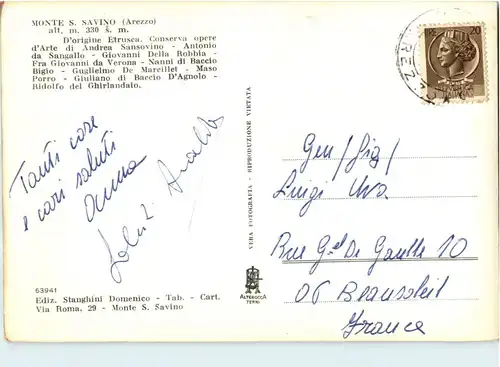 MONTE S. SAVINO (Arezzo)
alt. m. 330 s. m.
D'origine Etrusca. Conserva opere
d'Arte di Andrea Sansovino - Antonio
da Sangallo - Giovanni Della Robbia -
Fra Giovanni da Verona - Nanni di Baccio
Bigio - Guglielmo De Marcillet - Maso
Porro - Giuliano di Baccio D'Agnolo -
Ridolfo del Ghirlandaio.
Tanti cose
e cari saluti
Anna
Saluti Arnaldo
63941
Ediz. Stanghini Domenico - Tab. - Cart.
Via Roma, 29 - Monte S. Savino
VERA FOTOGRAFIA - RIPRODUZIONE VIETATA
ALTEROCCA
TERNI
20
Gen/Sig/
Luigi Uva
Rue Gal De Gaulle 10
06 Beausoleil
France